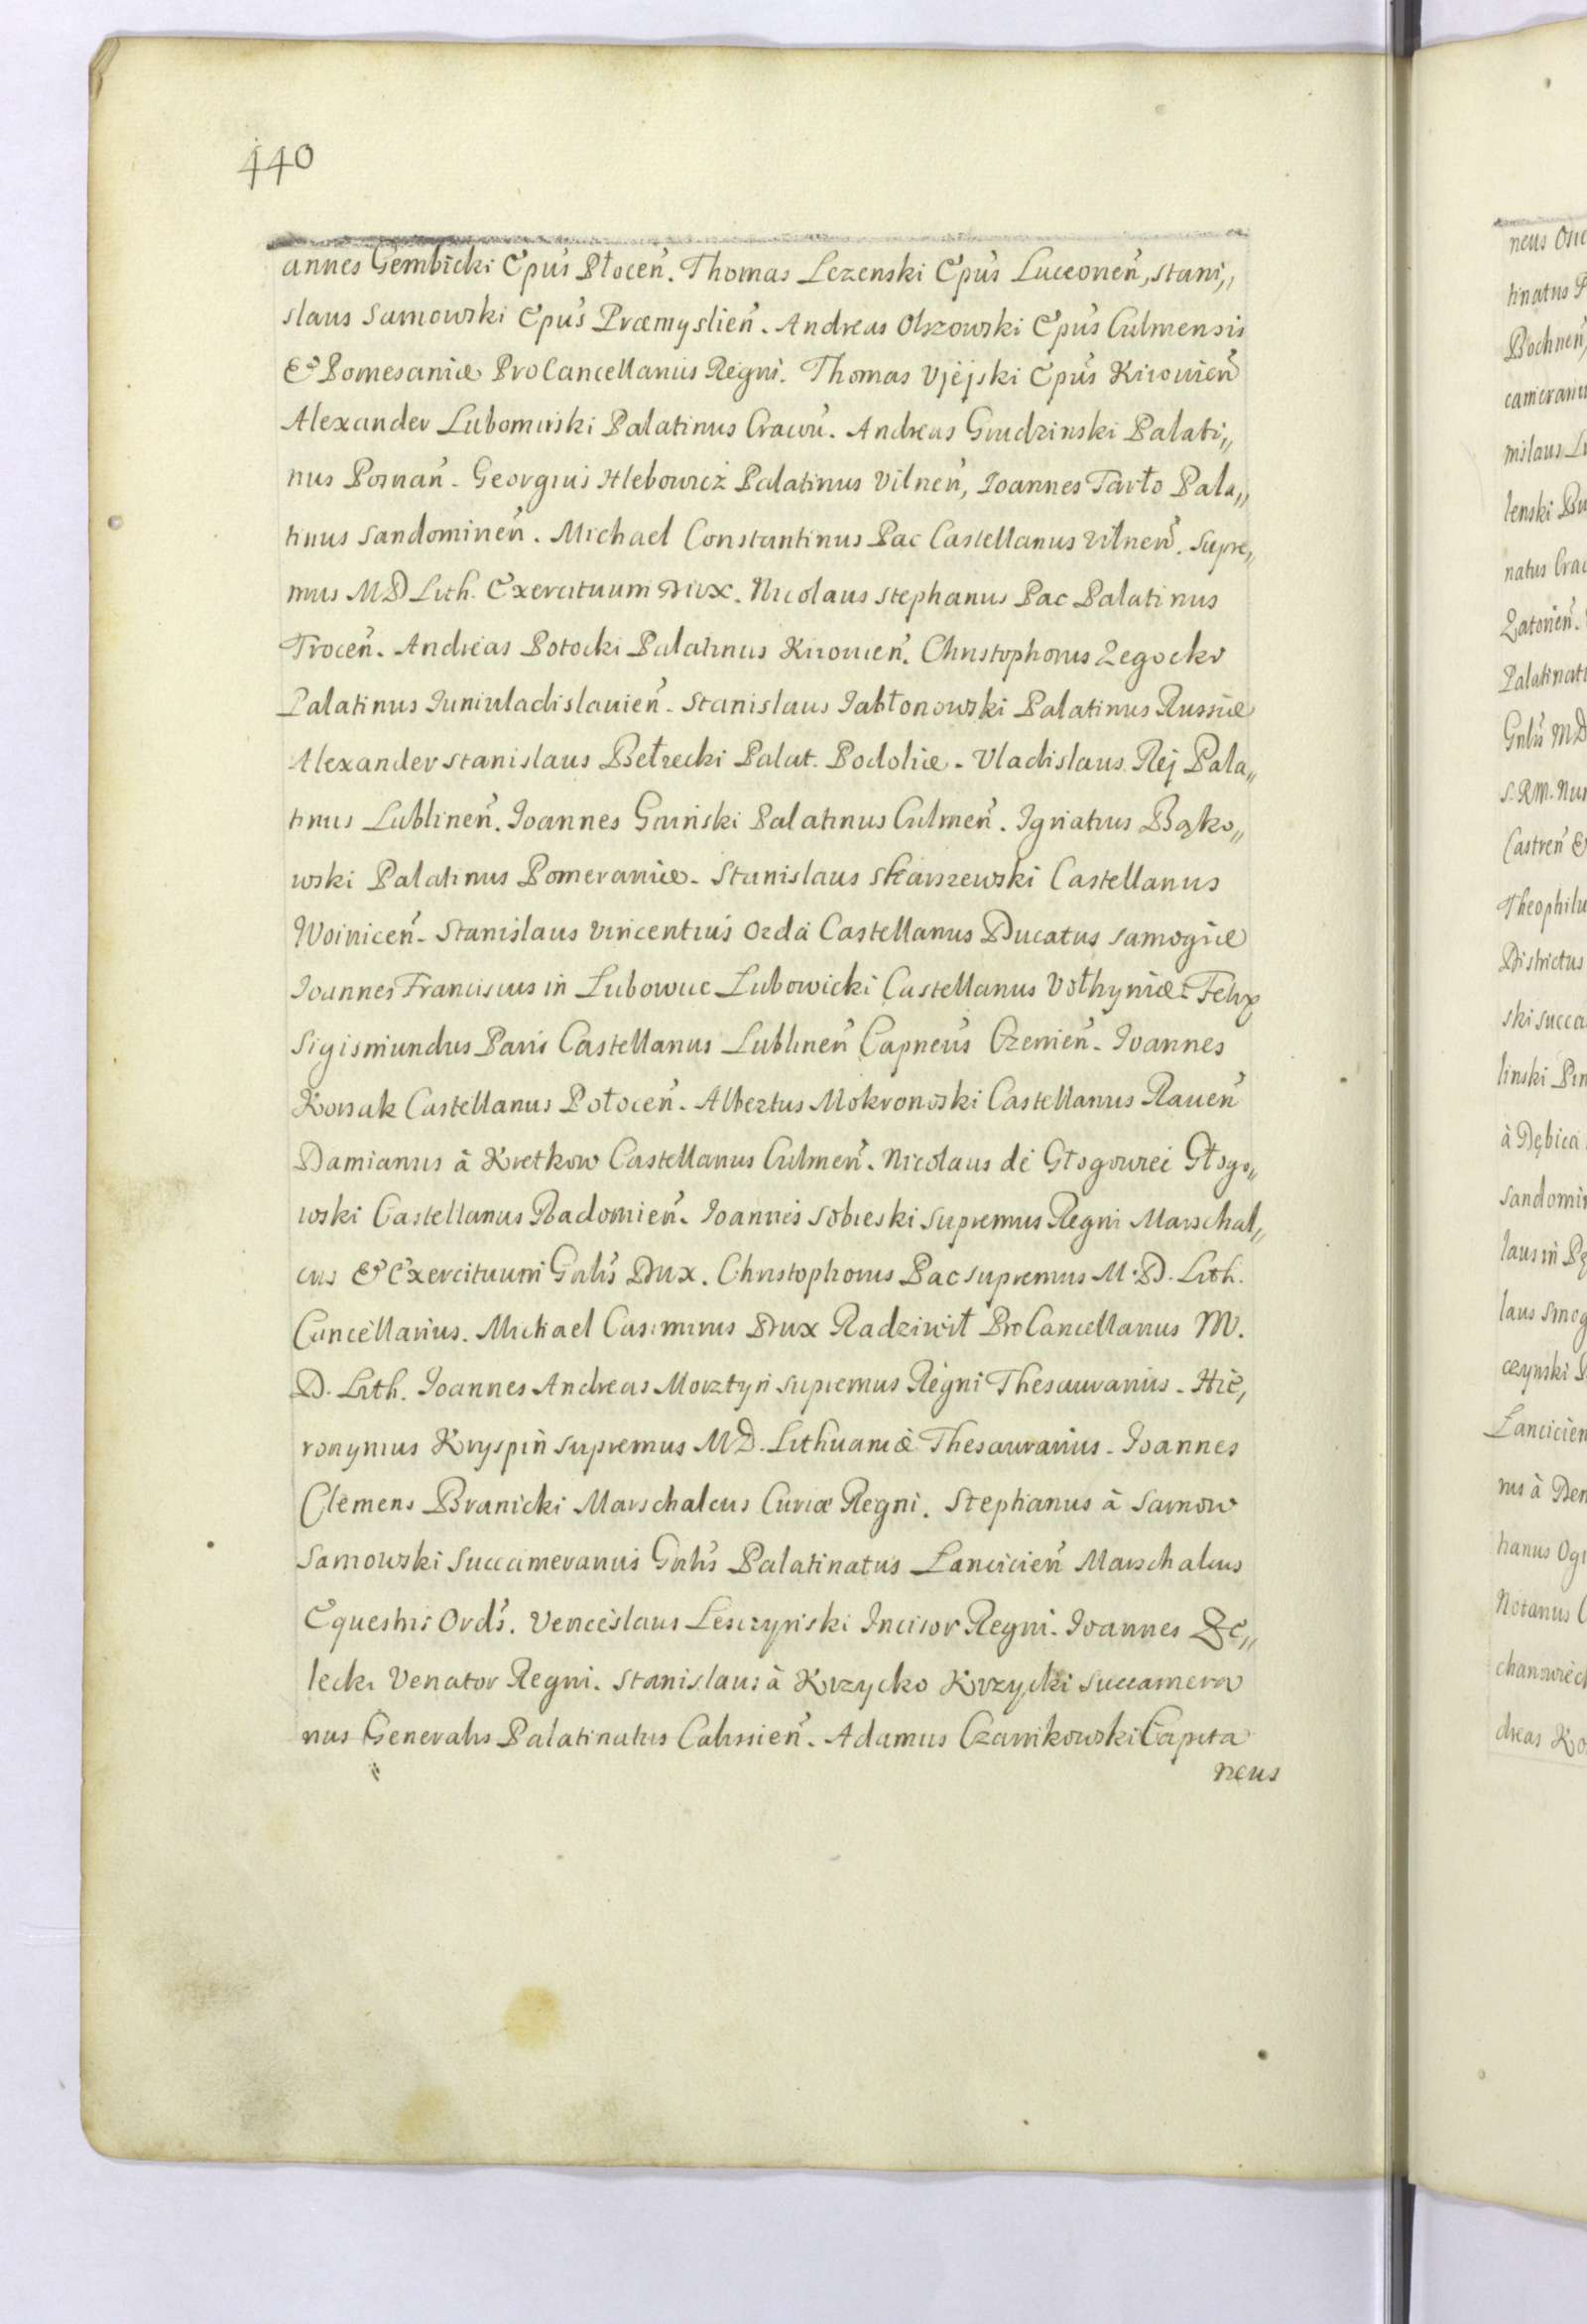 440
annes Gembicki Epus Płocen̄. Thomas Lezenski Epus Luceonen̄, Stani,,
slaus Sarnowski Epus Præmyslien̄. Andreas Olszowski Epus Culmensis
& Pomesaniæ ProCancellarius Regni. Thomas Vjejski Epus Kiiovien̄
Alexander Lubomirski Palatinus Cracoū. Andreas Grudzinski Palati,,
nus Posnan̄. Georgius Hlebowicz Palatinus Vilnen̄, Ioannes Tarło Pala,,
tinus Sandomirien̄. Michael Constantinus Pac Castellanus Vilnen̄. Supre,,
mus MD Lith. Exercituum Dux. Nicolaus Stephanus Pac Palatinus
Trocen̄. Andreas Potocki Palatinus Kiiouien̄. Christophorus Zegocki
Palatinus Iuniuladislauien̄. Stanislaus Jabłonowski Palatinus Russiæ
Alexander Stanislaus Bełzecki Palat. Podoliæ. Vladislaus Rej Pala,,
tinus Lublinen̄. Ioannes Gninski Palatinus Culmen̄. Ignatius Bąko,,
wski Palatinus Pomeraniæ. Stanislaus Skarszewski Castellanus
Woinicen̄. Stanislaus Vincentius Orda Castellanus Ducatus Samogiæ
Ioannes Franciscus in Lubowiec Lubowicki Castellanus Vołhyniæ. Felix
Sigismundus Paris Castellanus Lublinen̄ Capneus Czerrien̄. Ioannes
Korsak Castellanus Połocen̄. Albertus Mokronoski Castellanus Rauen̄
Damianus à Kretkow Castellanus Culmen̄. Nicolaus de Głogowiei Głogo,,
wski Castellanus Radomien̄. Ioannes Sobieski Supremus Regni Marschal,,
cus & Exercituum Gnlis Dux. Christophorus Pac Supremus M. D. Lith.
Cancellarius. Michael Casimirus Dux Radziwił ProCancellarius M.
D. Lith. Ioannes Andreas Morztyn Supremus Regni Thesaurarius. Hie,,
ronymus Kryspin Supremus MD. Lithuaniæ Thesaurarius. Ioannes
Clemens Branicki Marschalcus Curiæ Regni. Stephanus à Sarnow
Sarnowski Succamerarius Gnlis Palatinatus Lancicien̄ Marschalcus
Equestris Ord̄s. Venceslaus Lesczynski Incisor Regni. Ioannes Ze,,
lecki Venator Regni. Stanislaus à Krzycko Krzycki Succamera
rius Generalis Palatinatus Calissien̄. Adamus Czarnkowski Capita
neus